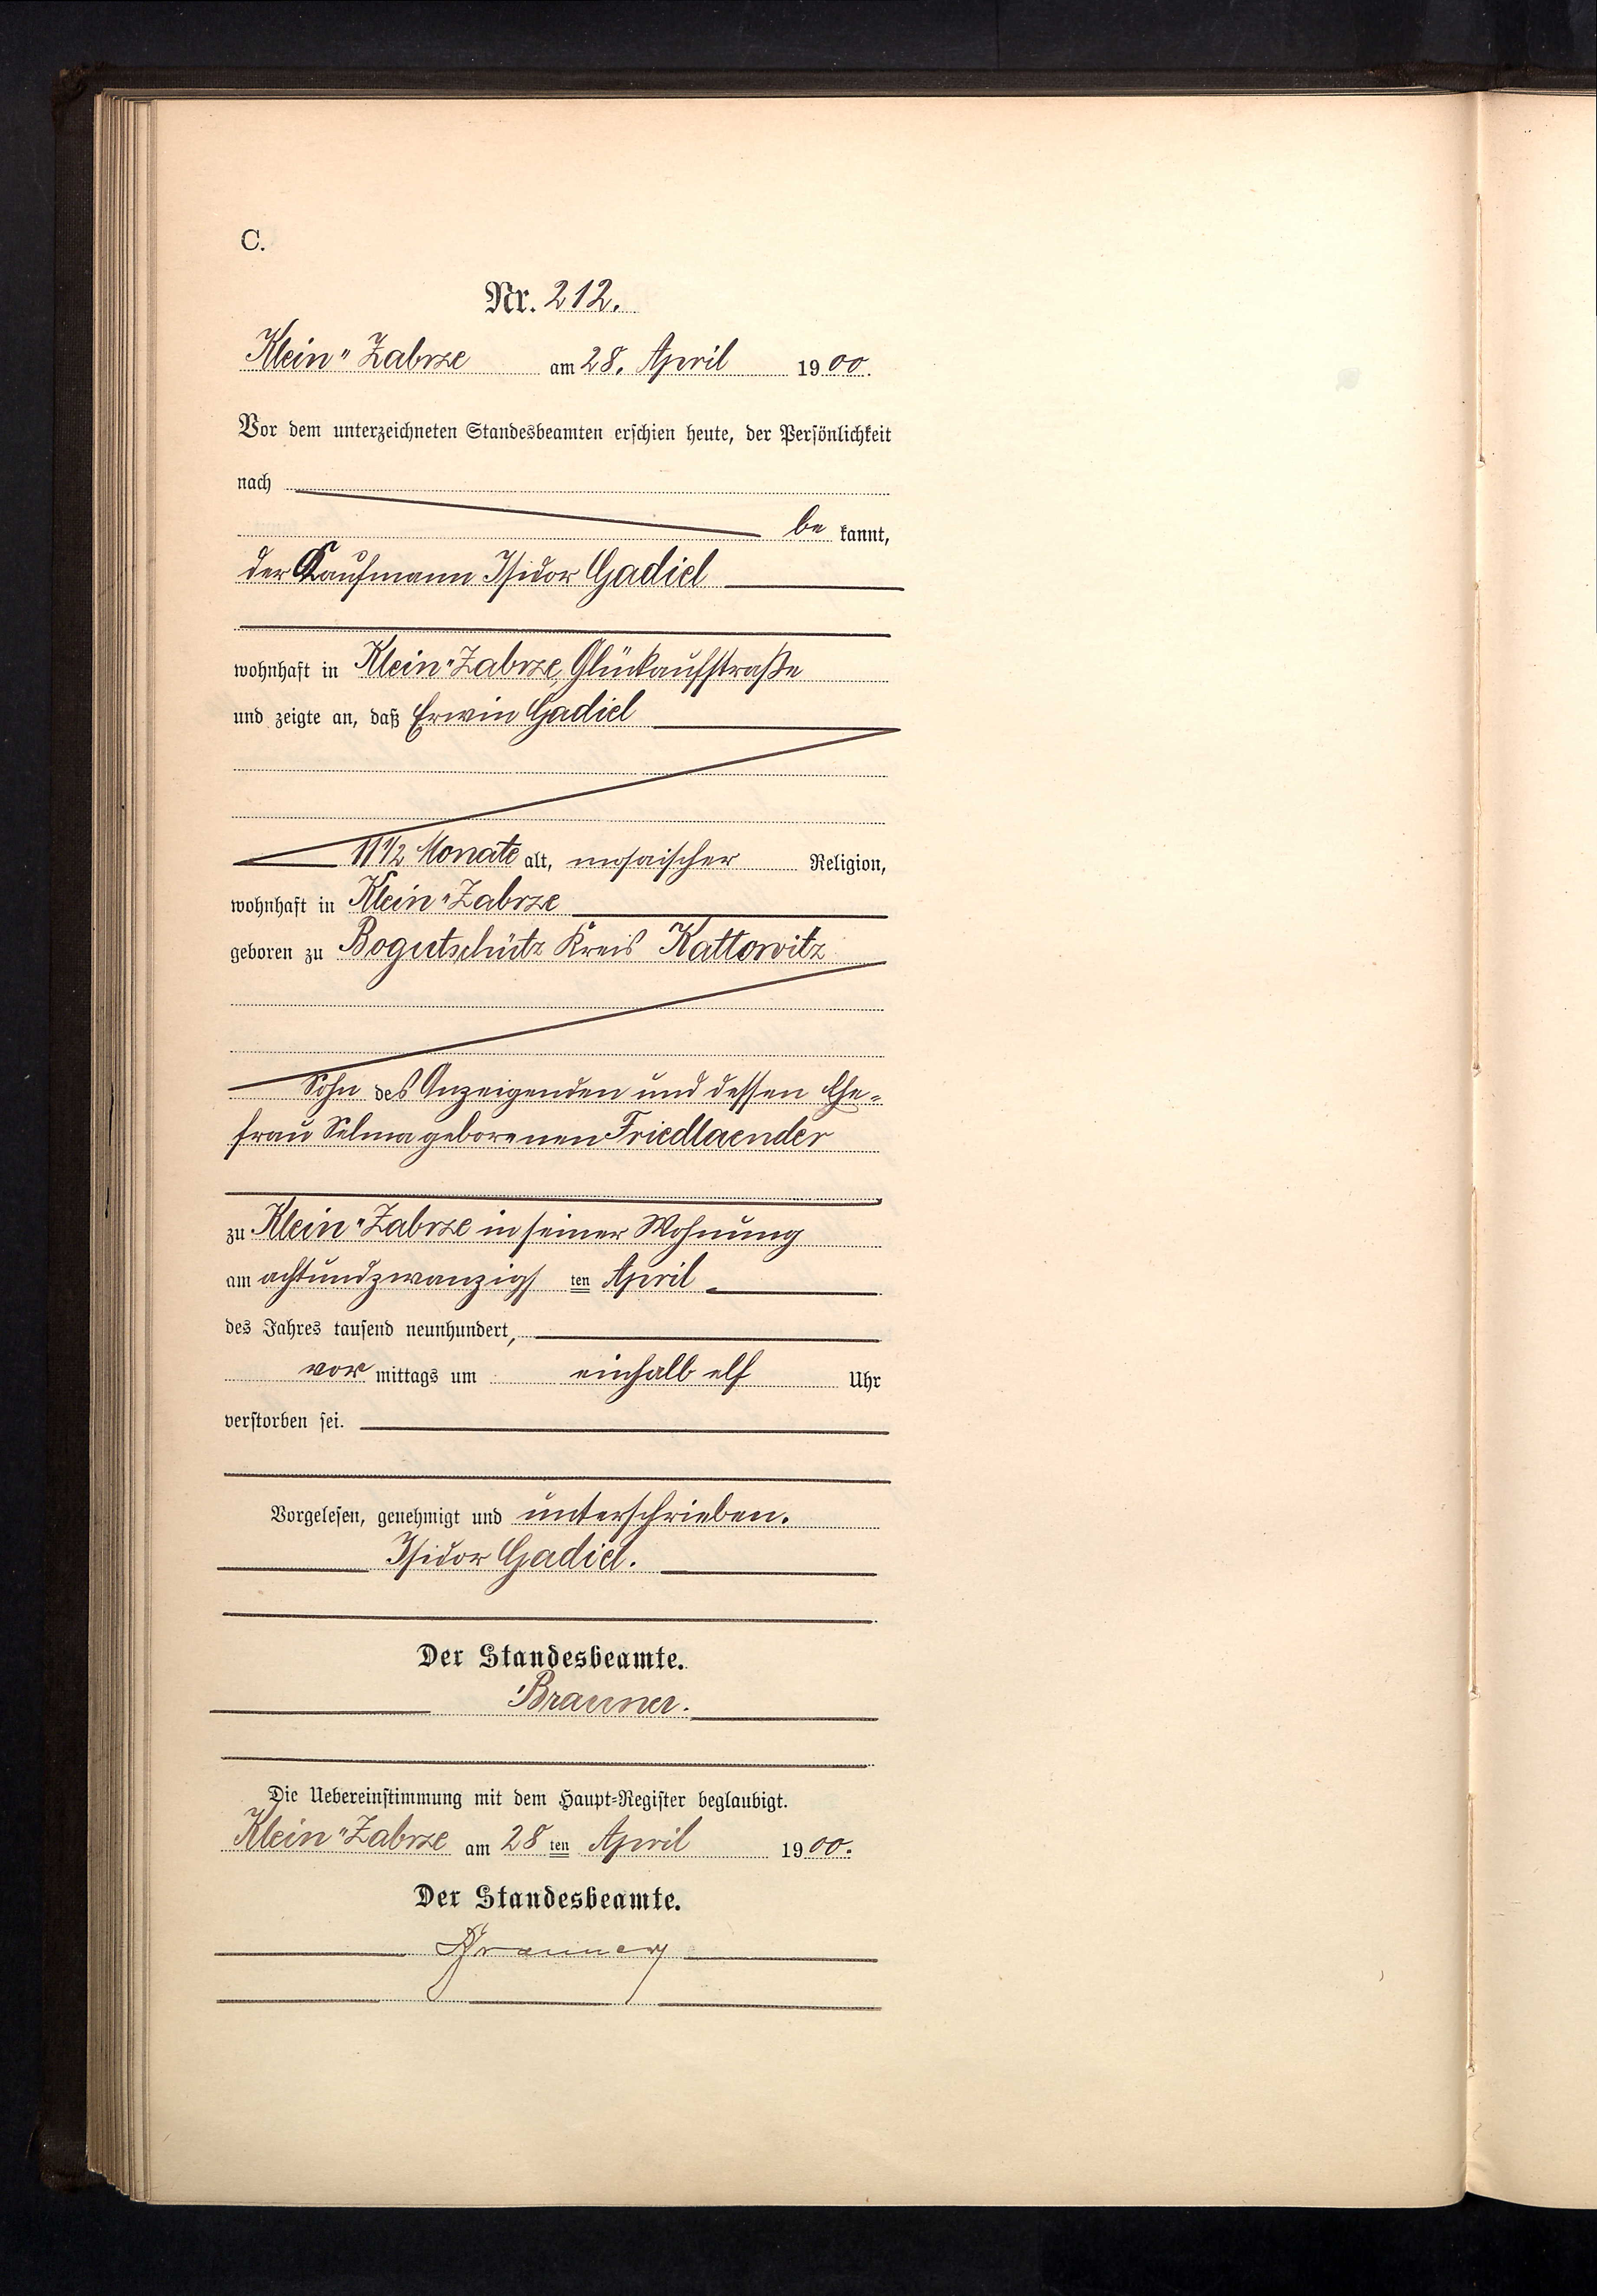 C.
Nr. 212.
Klein-Zabrze am 28. April 1900.
Vor dem unterzeichneten Standesbeamten erschien heute, der Persönlichkeit
nach
be kannt,
der Kaufmann Isidor Gadiel
wohnhaft in Klein-Zabrze, Glückaufstraße
und zeigte an, daß Erwin Gadiel
11 1/2 Monate alt, mosaischer Religion,
wohnhaft in Klein-Zabrze
geboren zu Bogutschütz Kreis Kattowitz
Sohn des Anzeigenden und dessen Ehe-
frau Selma geborenen Friedlaender
zu Klein-Zabrze in seiner Wohnung
am achtundzwanzigs ten April
des Jahres tausend neunhundert,
vor mittags um einhalb elf Uhr
verstorben sei.
Vorgelesen, genehmigt und unterschrieben.
Isidor Gadiel.
Der Standesbeamte.
Brauner.
Die Uebereinstimmung mit dem Haupt-Register beglaubigt.
Klein-Zabrze am 28 ten April 1900.
Der Standesbeamte.
Brauner